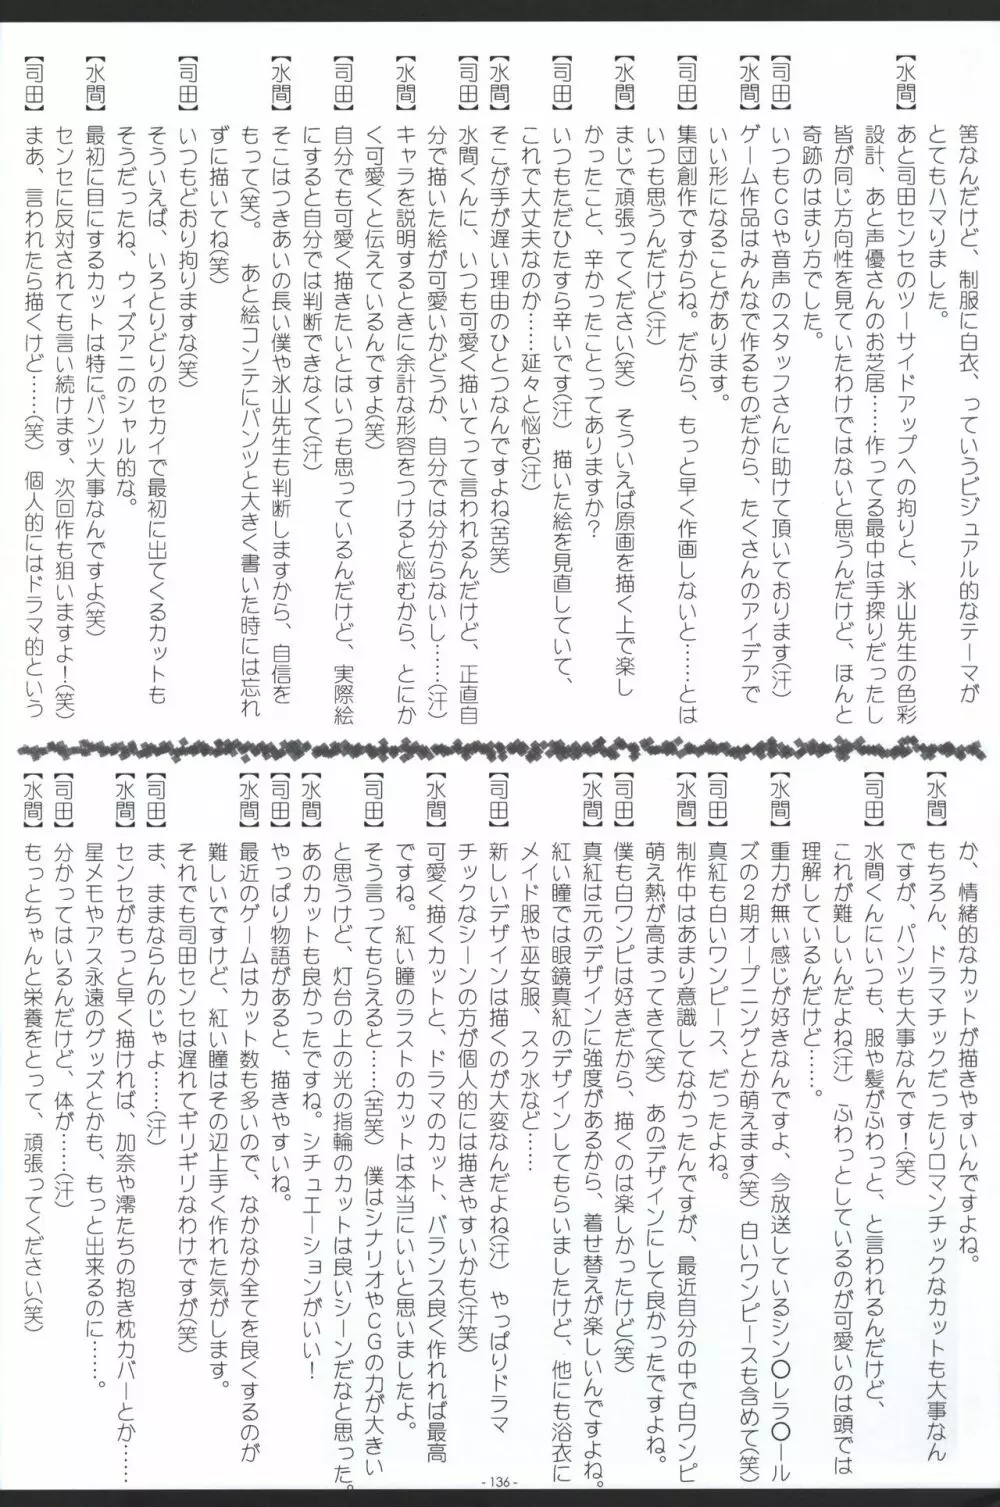 筈なんだけど、制服に白衣、っていうビジュアル的なテーマが
とてもハマりました。
【水間】 あと司田センセのツーサイドアップへの拘りと、氷山先生の色彩
設計、あと声優さんのお芝居……作ってる最中は手探りだったし
皆が同じ方向性を見ていたわけではないと思うんだけど、ほんと
奇跡のはまり方でした。
【司田】 いつもＣＧや音声のスタッフさんに助けて頂いております(汗)
【水間】 ゲーム作品はみんなで作るものだから、たくさんのアイデアで
いい形になることがあります。
【司田】 集団創作ですからね。だから、もっと早く作画しないと……とは
いつも思うんだけど(汗)
【水間】 まじで頑張ってください(笑)　そういえば原画を描く上で楽し
かったこと、辛かったことってありますか？
【司田】 いつもただひたすら辛いです(汗)　描いた絵を見直していて、
これで大丈夫なのか……延々と悩む(汗)
【水間】 そこが手が遅い理由のひとつなんですよね(苦笑)
【司田】 水間くんに、いつも可愛く描いてって言われるんだけど、正直自
分で描いた絵が可愛いかどうか、自分では分からないし……(汗)
【水間】 キャラを説明するときに余計な形容をつけると悩むから、とにか
く可愛くと伝えているんですよ(笑)
【司田】 自分でも可愛く描きたいとはいつも思っているんだけど、実際絵
にすると自分では判断できなくて(汗)
【水間】 そこはつきあいの長い僕や氷山先生も判断しますから、自信を
もって(笑)。　あと絵コンテにパンツと大きく書いた時には忘れ
ずに描いてね(笑)
【司田】 いつもどおり拘りますな(笑)
そういえば、いろとりどりのセカイで最初に出てくるカットも
そうだったね、ウィズアニのシャル的な。
【水間】 最初に目にするカットは特にパンツ大事なんですよ(笑)
センセに反対されても言い続けます、次回作も狙いますよ！(笑)
【司田】 まあ、言われたら描くけど……(笑)　個人的にはドラマ的という
か、情緒的なカットが描きやすいんですよね。
【水間】 もちろん、ドラマチックだったりロマンチックなカットも大事なん
ですが、パンツも大事なんです！(笑)
【司田】 水間くんにいつも、服や髪がふわっと、と言われるんだけど、
これが難しいんだよね(汗)　ふわっとしているのが可愛いのは頭では
理解しているんだけど……。
【水間】 重力が無い感じが好きなんですよ、今放送しているシン〇レラ〇ール
ズの２期オープニングとか萌えます(笑)　白いワンピースも含めて(笑)
【司田】 真紅も白いワンピース、だったよね。
【水間】 制作中はあまり意識してなかったんですが、最近自分の中で白ワンピ
萌え熱が高まってきて(笑)　あのデザインにして良かったですよね。
【司田】 僕も白ワンピは好きだから、描くのは楽しかったけど(笑)
【水間】 真紅は元のデザインに強度があるから、着せ替えが楽しいんですよね。
紅い瞳では眼鏡真紅のデザインしてもらいましたけど、他にも浴衣に
メイド服や巫女服、スク水など……
【司田】 新しいデザインは描くのが大変なんだよね(汗)　やっぱりドラマ
チックなシーンの方が個人的には描きやすいかも(汗笑)
【水間】 可愛く描くカットと、ドラマのカット、バランス良く作れれば最高
ですね。紅い瞳のラストのカットは本当にいいと思いましたよ。
【司田】 そう言ってもらえると……(苦笑)　僕はシナリオやＣＧの力が大きい
と思うけど、灯台の上の光の指輪のカットは良いシーンだなと思った。
【水間】 あのカットも良かったですね。シチュエーションがいい！
【司田】 やっぱり物語があると、描きやすいね。
【水間】 最近のゲームはカット数も多いので、なかなか全てを良くするのが
難しいですけど、紅い瞳はその辺上手く作れた気がします。
それでも司田センセは遅れてギリギリなわけですが(笑)
【司田】 ま、ままならんのじゃよ……(汗)
【水間】 センセがもっと早く描ければ、加奈や澪たちの抱き枕カバーとか……
星メモやアス永遠のグッズとかも、もっと出来るのに……。
【司田】 分かってはいるんだけど、体が……(汗)
【水間】 もっとちゃんと栄養をとって、頑張ってください(笑)
- 136 -